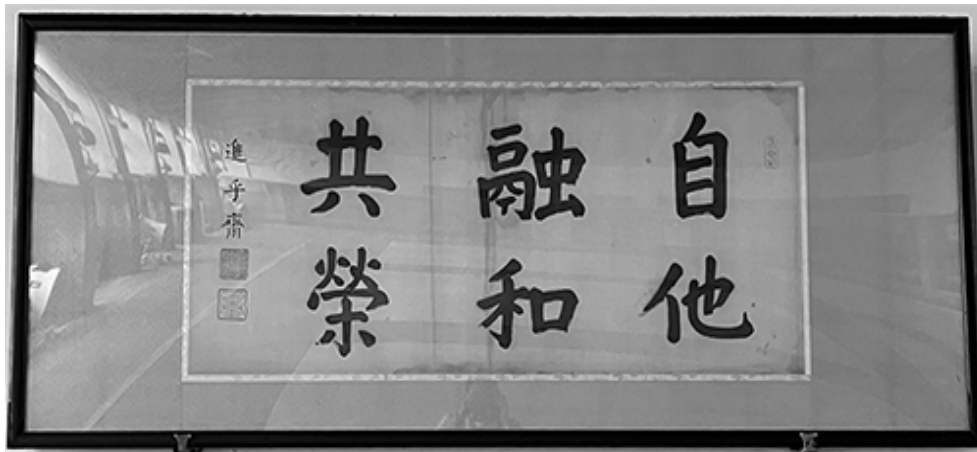 自他
融和
共榮
進乎齋